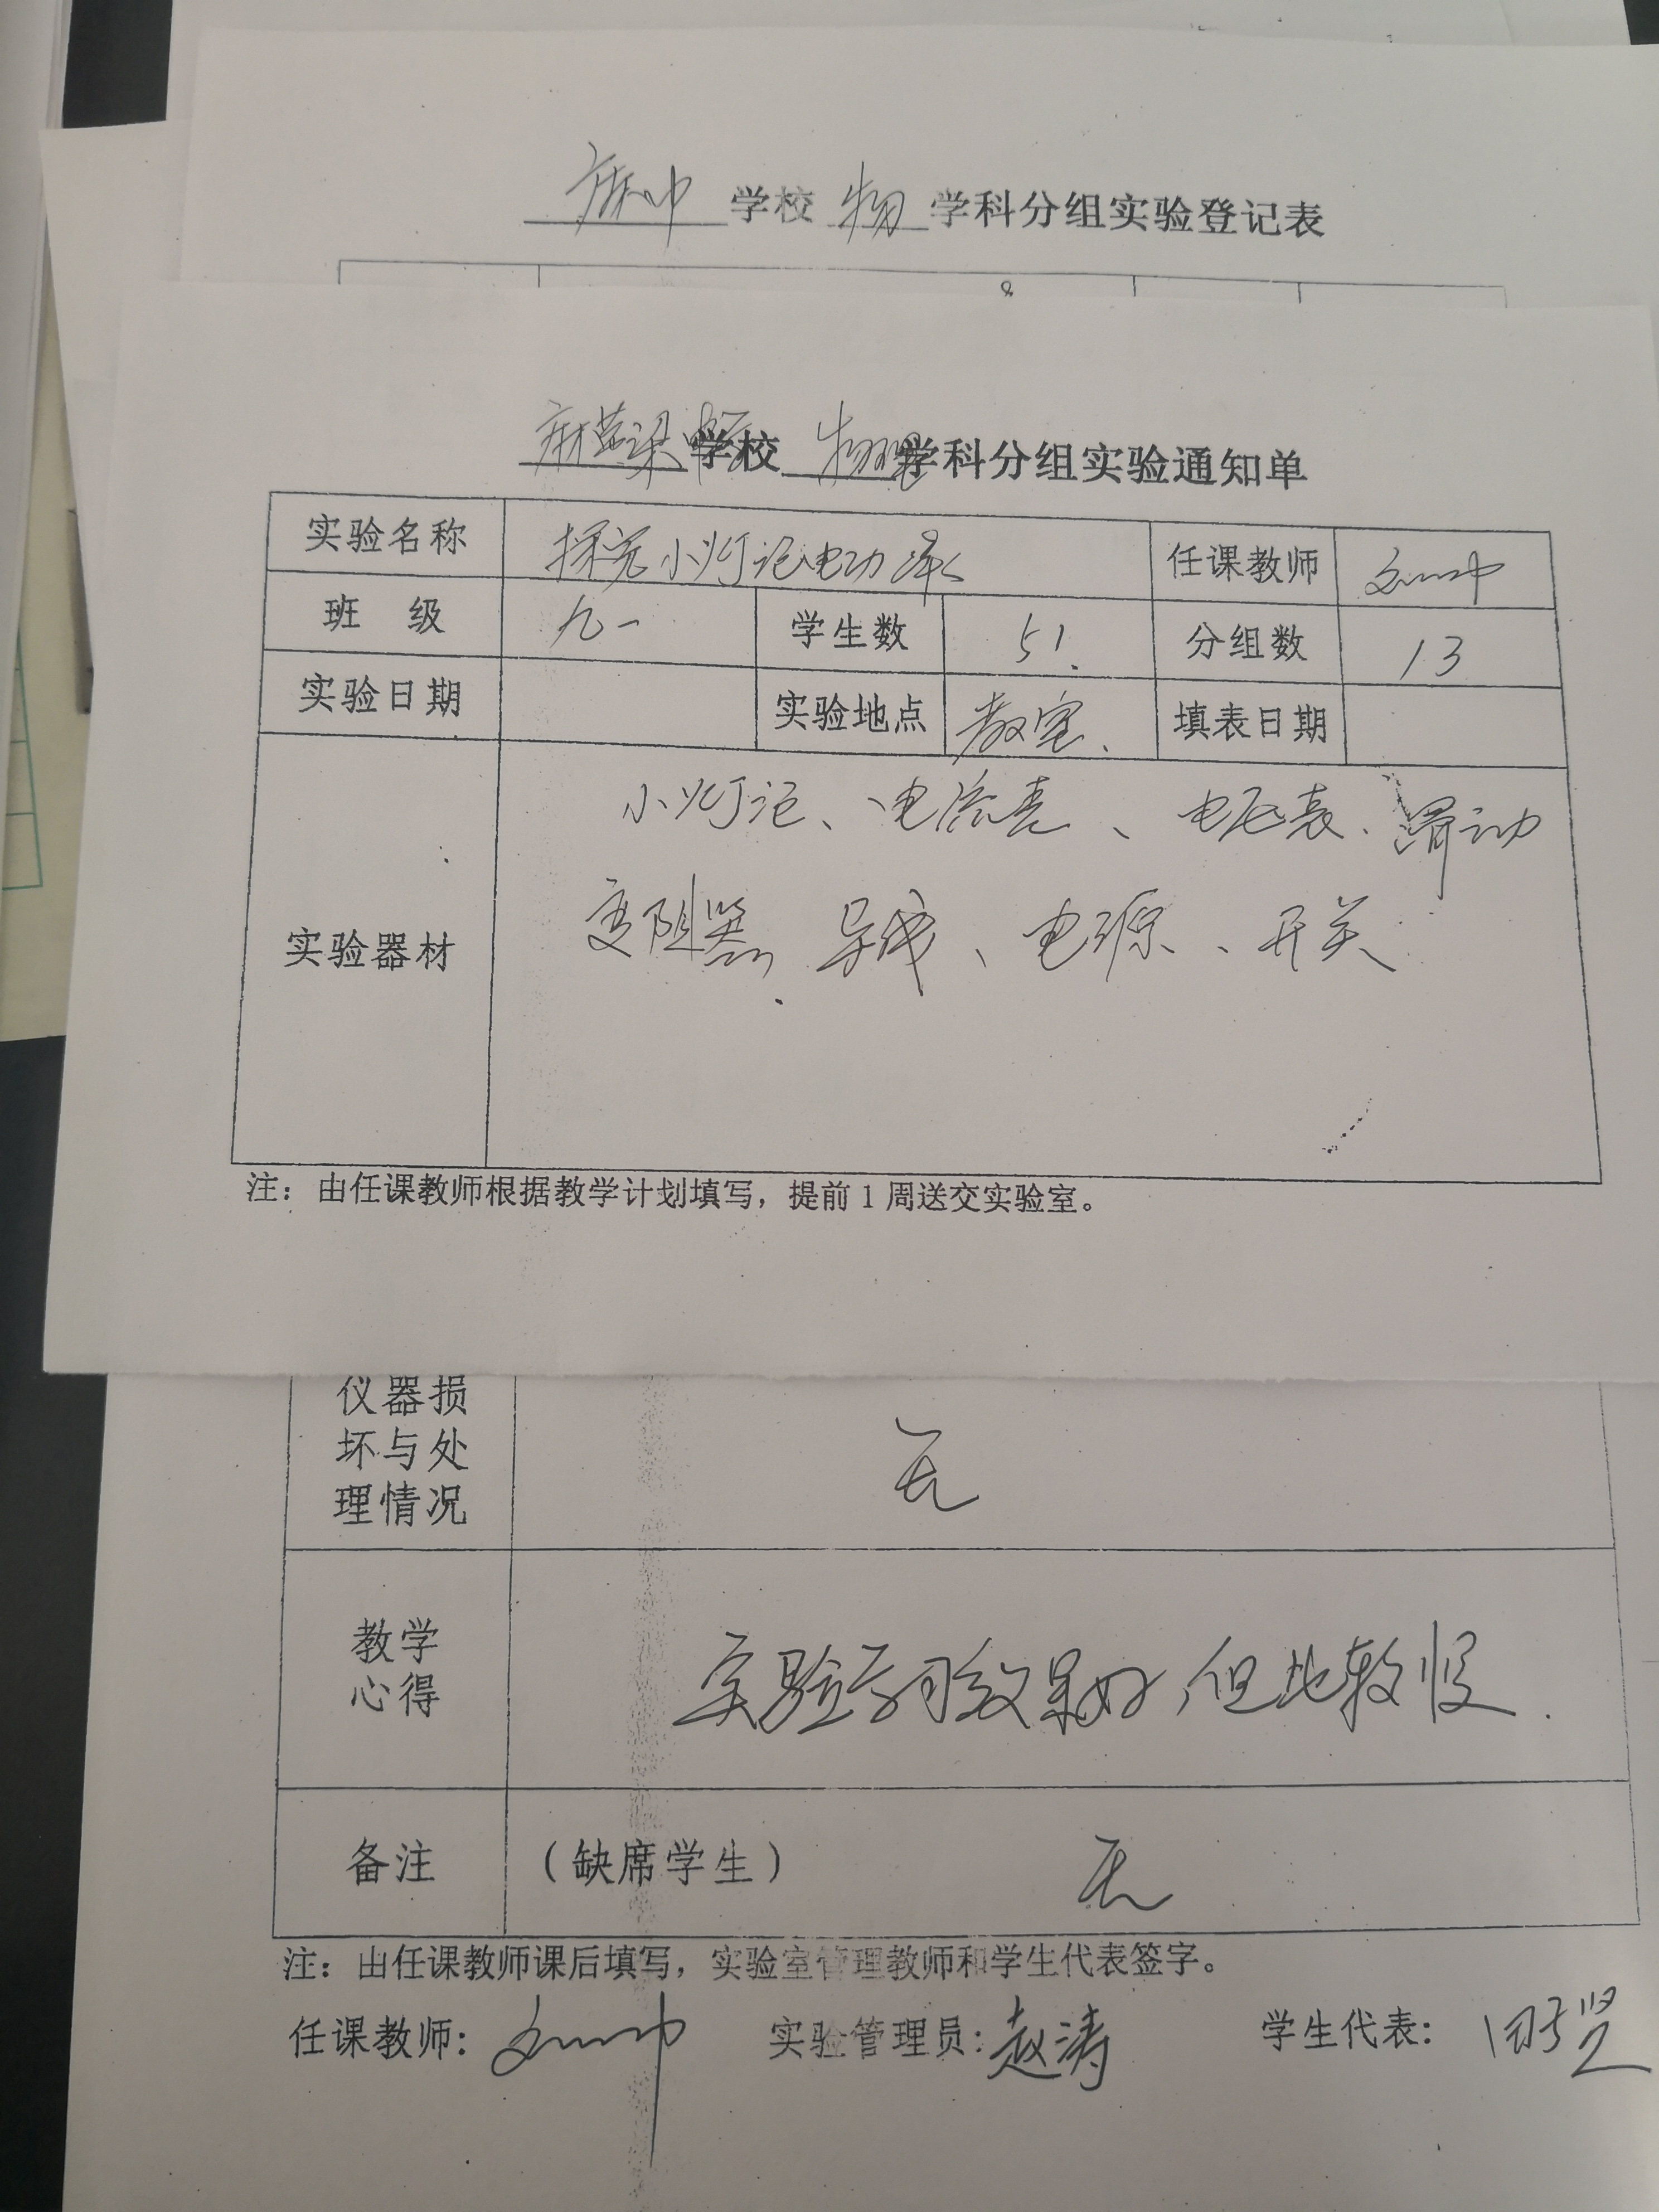 麻中 学校 物 学科分组实验登记表
麻黄梁中学 学校 物理 学科分组实验通知单
实验名称 探究小灯泡电功率 任课教师
班 级 九一 学生数 51. 分组数 13
实验日期 实验地点 教室、 填表日期
实验器材
小灯泡、电流表、电压表、滑动
变阻器、导线、电源、开关
注：由任课教师根据教学计划填写，提前1周送交实验室。
仪器损
坏与处
理情况
无
教学
心得
实验学习效果好，但比较慢.
备注 （缺席学生） 无
注：由任课教师课后填写，实验室管理教师和学生代表签字。
任课教师： 实验管理员：赵涛 学生代表：